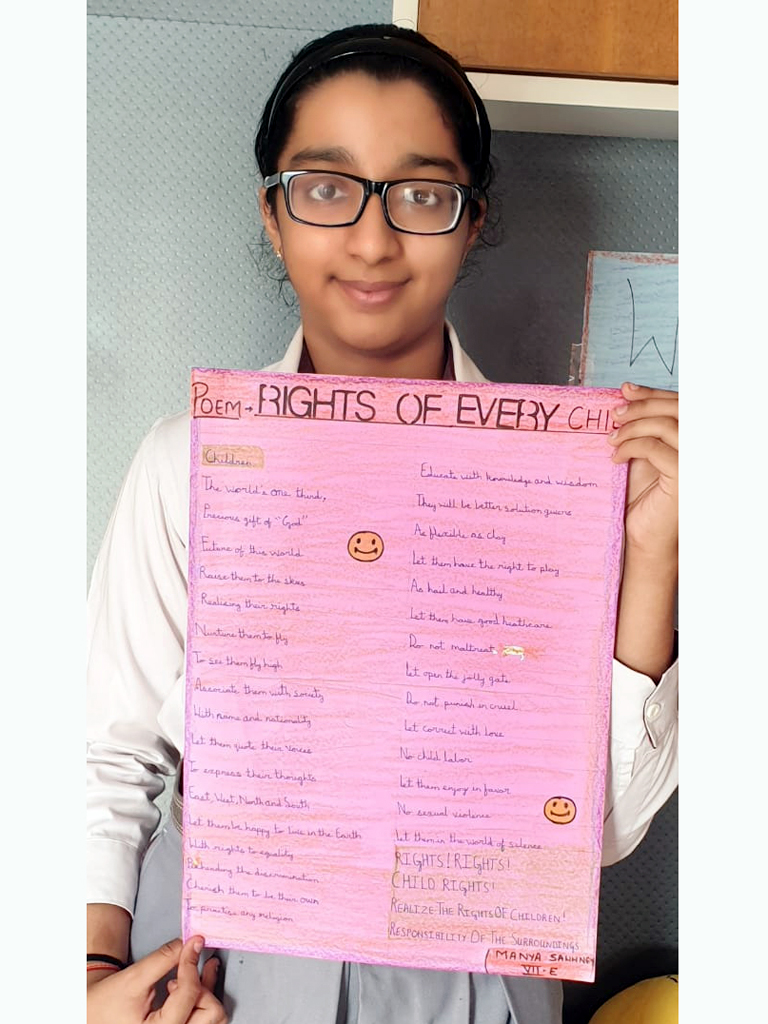 POEM → RIGHTS OF EVERY CHIL
Children
The world's one third,
Precious gift of "God"
Future of this world
Raise them to the skies
Realising their rights
Nurture them to fly
To see them fly high
Associate them with society
With name and nationality
Let them quote their voices
To express their thoughts
East, West, North and South
Let them be happy to live in the Earth
With rights to equality
Beheading the discrimination
Cherish them to be their own
To practise any religion
Educate with knowledge and wisdom
They will be better solution givers
As flexible as clay
Let them have the right to play
As hail and healthy
Let them have good heathcare
Do not maltreat
Let open the jolly gate
Do not punish in cruel
Let correct with love
No child labor
Let them enjoy in favor
No sexual violence
Let them in the world of silence
RIGHTS! RIGHTS!
CHILD RIGHTS!
REALIZE THE RIGHTS OF CHILDREN!
RESPONSIBILITY OF THE SURROUNDINGS
MANYA SAWHNEY
VII-E
W